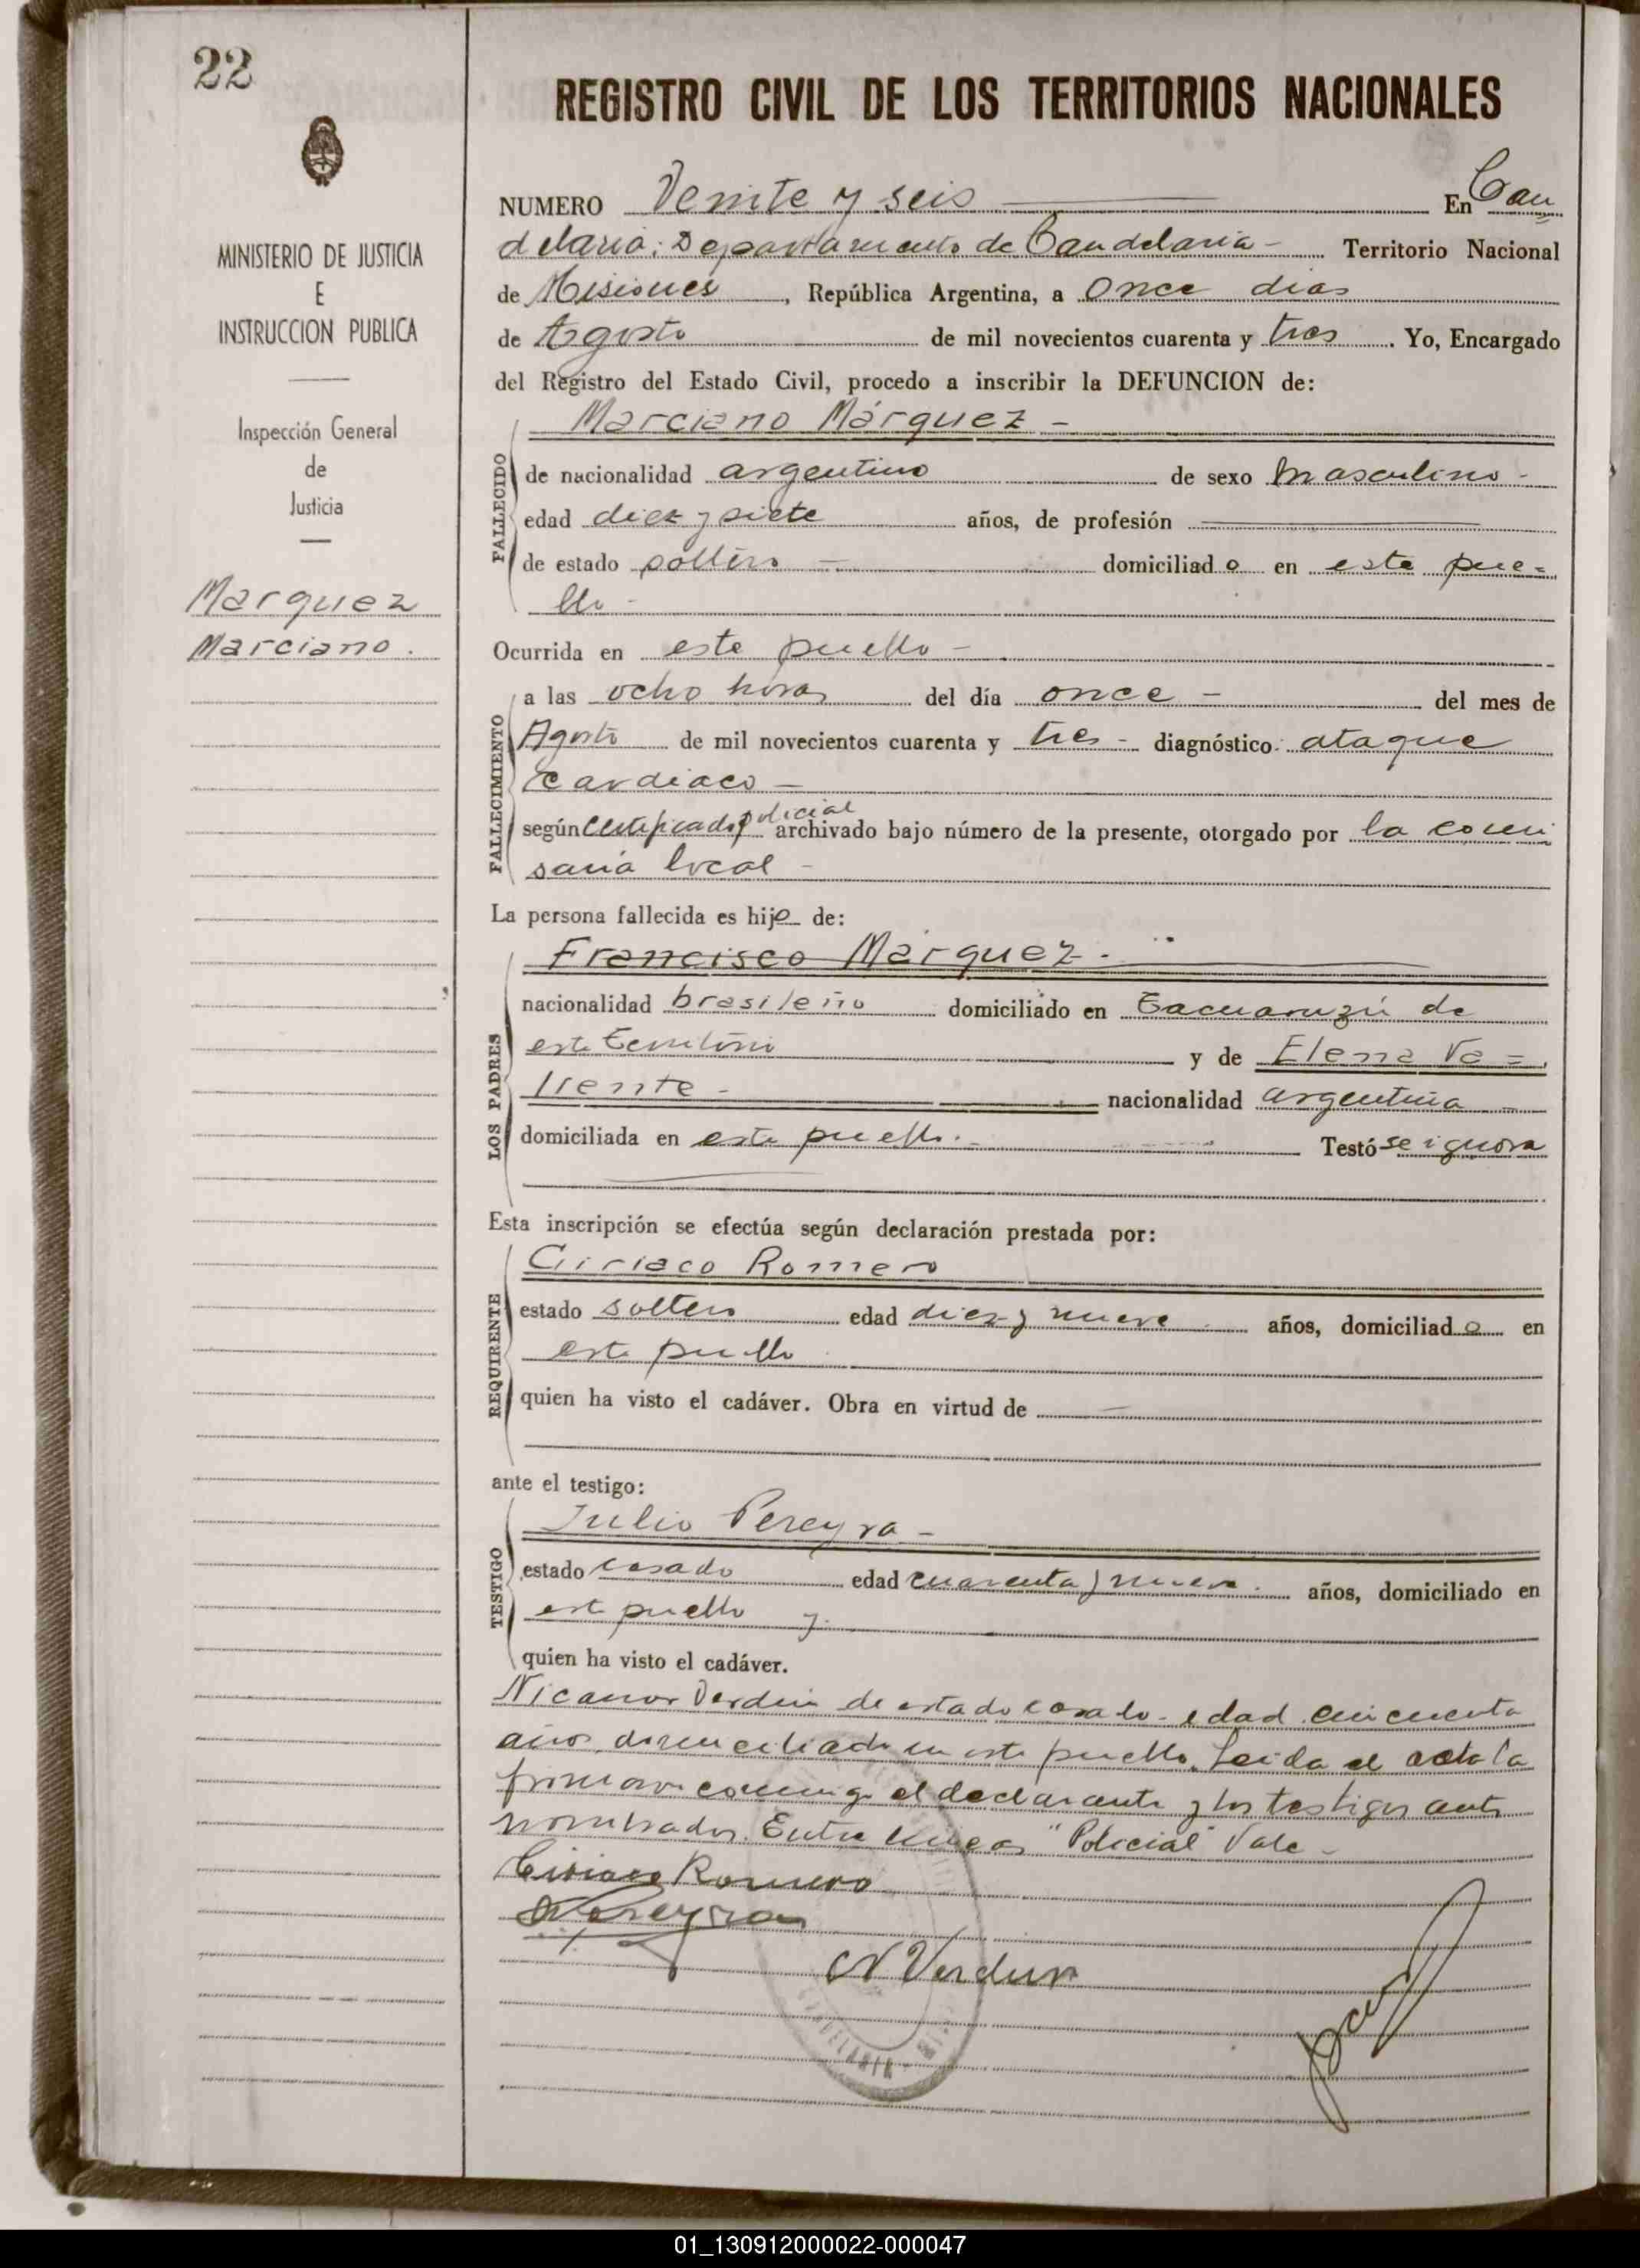 22
REGISTRO CIVIL DE LOS TERRITORIOS NACIONALES
MINISTERIO DE JUSTICIA
E
INSTRUCCION PUBLICA
Inspección General
de
Justicia
Marquez
Marciano.
NUMERO Veinte y seis En Can=
delaria: Departamento de Candelaria - Territorio Nacional
de Misiones, República Argentina, a once dias
de Agosto de mil novecientos cuarenta y tres. Yo, Encargado
del Registro del Estado Civil, procedo a inscribir la DEFUNCION de:
Marciano Márquez -
FALLECIDO
de nacionalidad argentino de sexo masculino -
edad diez y siete años, de profesión
de estado soltero - domiciliado en este pue=
blo -
Ocurrida en este pueblo -
FALLECIMIENTO
a las ocho horas del día once - del mes de
Agosto de mil novecientos cuarenta y tres - diagnóstico: ataque
cardiaco -
según certificado policial archivado bajo número de la presente, otorgado por la comi
saria local -
La persona fallecida es hijo de:
LOS PADRES
Francisco Márquez.
nacionalidad brasileño domiciliado en Tacuaruzú de
este territorio y de Elena Va=
liente - nacionalidad argentina -
domiciliada en este pueblo. - Testó se ignora
Esta inscripción se efectúa según declaración prestada por:
REQUIRENTE
Ciriaco Romero
estado soltero edad diez y nueve años, domiciliado en
este pueblo
quien ha visto el cadáver. Obra en virtud de -
ante el testigo:
TESTIGO
Julio Pereyra -
estado casado edad cuarenta y nueve. años, domiciliado en
este pueblo y
quien ha visto el cadáver.
Nicanor Verdun de estado casado - edad cincuenta
años, domiciliado en este pueblo. Leida el acta la
firmaron conmigo el declarante y los testigos ante
nombrados. Entre lineas "Policial" Vale -
Ciriaco Romero
Pereyra
N Verdun
01_130912000022-000047